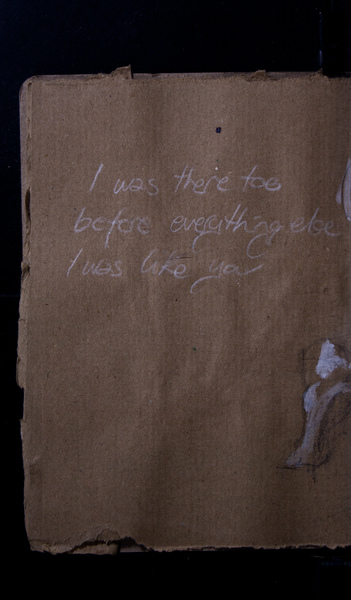 I was there too
before everything else
I was like you